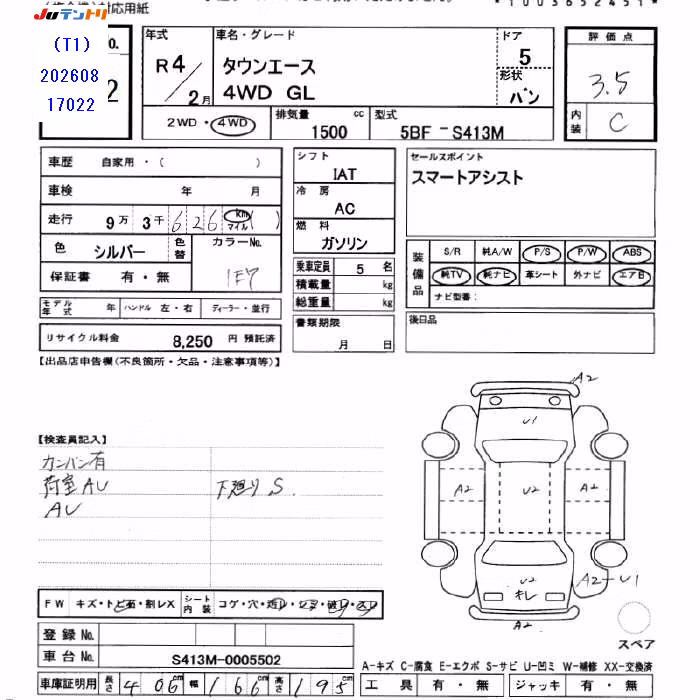 対応用紙
*1003652451*
Juテントリ
(T1)
202608
17022
No.
2
年式
R4/2月
車名・グレード
タウンエース
4WD GL
ドア
5
形状
バン
評価点
3.5
内装
C
2WD・4WD
排気量
1500 cc
型式
5BF - S413M
車歴 自家用・( )
車検 年 月
走行 9万 3千 626 km マイル ( )
色 シルバー 色替
カラーNo.
1E7
保証書 有・無
モデル年式 年 ハンドル 左・右 ディーラー・並行
リサイクル料金 8,250 円 預託済
シフト
IAT
冷房
AC
燃料
ガソリン
乗車定員 5 名
積載量 kg
総重量 kg
書類期限
月 日
セールスポイント
スマートアシスト
装備品
S/R 純A/W P/S P/W ABS
純TV 純ナビ 革シート 外ナビ エアB
ナビ型番:
後日品
【出品店申告欄(不良箇所・欠品・注意事項等)】
【検査員記入】
カンバン有
荷室AU 下廻りS.
AU
A2
U1
A2
U2
A2
U2
キレ
A2-U1
A2
スペア
FW キズ・トビ石・割レX シート内装 コゲ・穴・
登録No.
車台No. S413M-0005502
車庫証明用 長さ 406 幅 166 高さ 195
A-キズ C-腐食 E-エクボ S-サビ U-凹ミ W-補修 XX-交換済
工具 有・無 ジャッキ 有・無